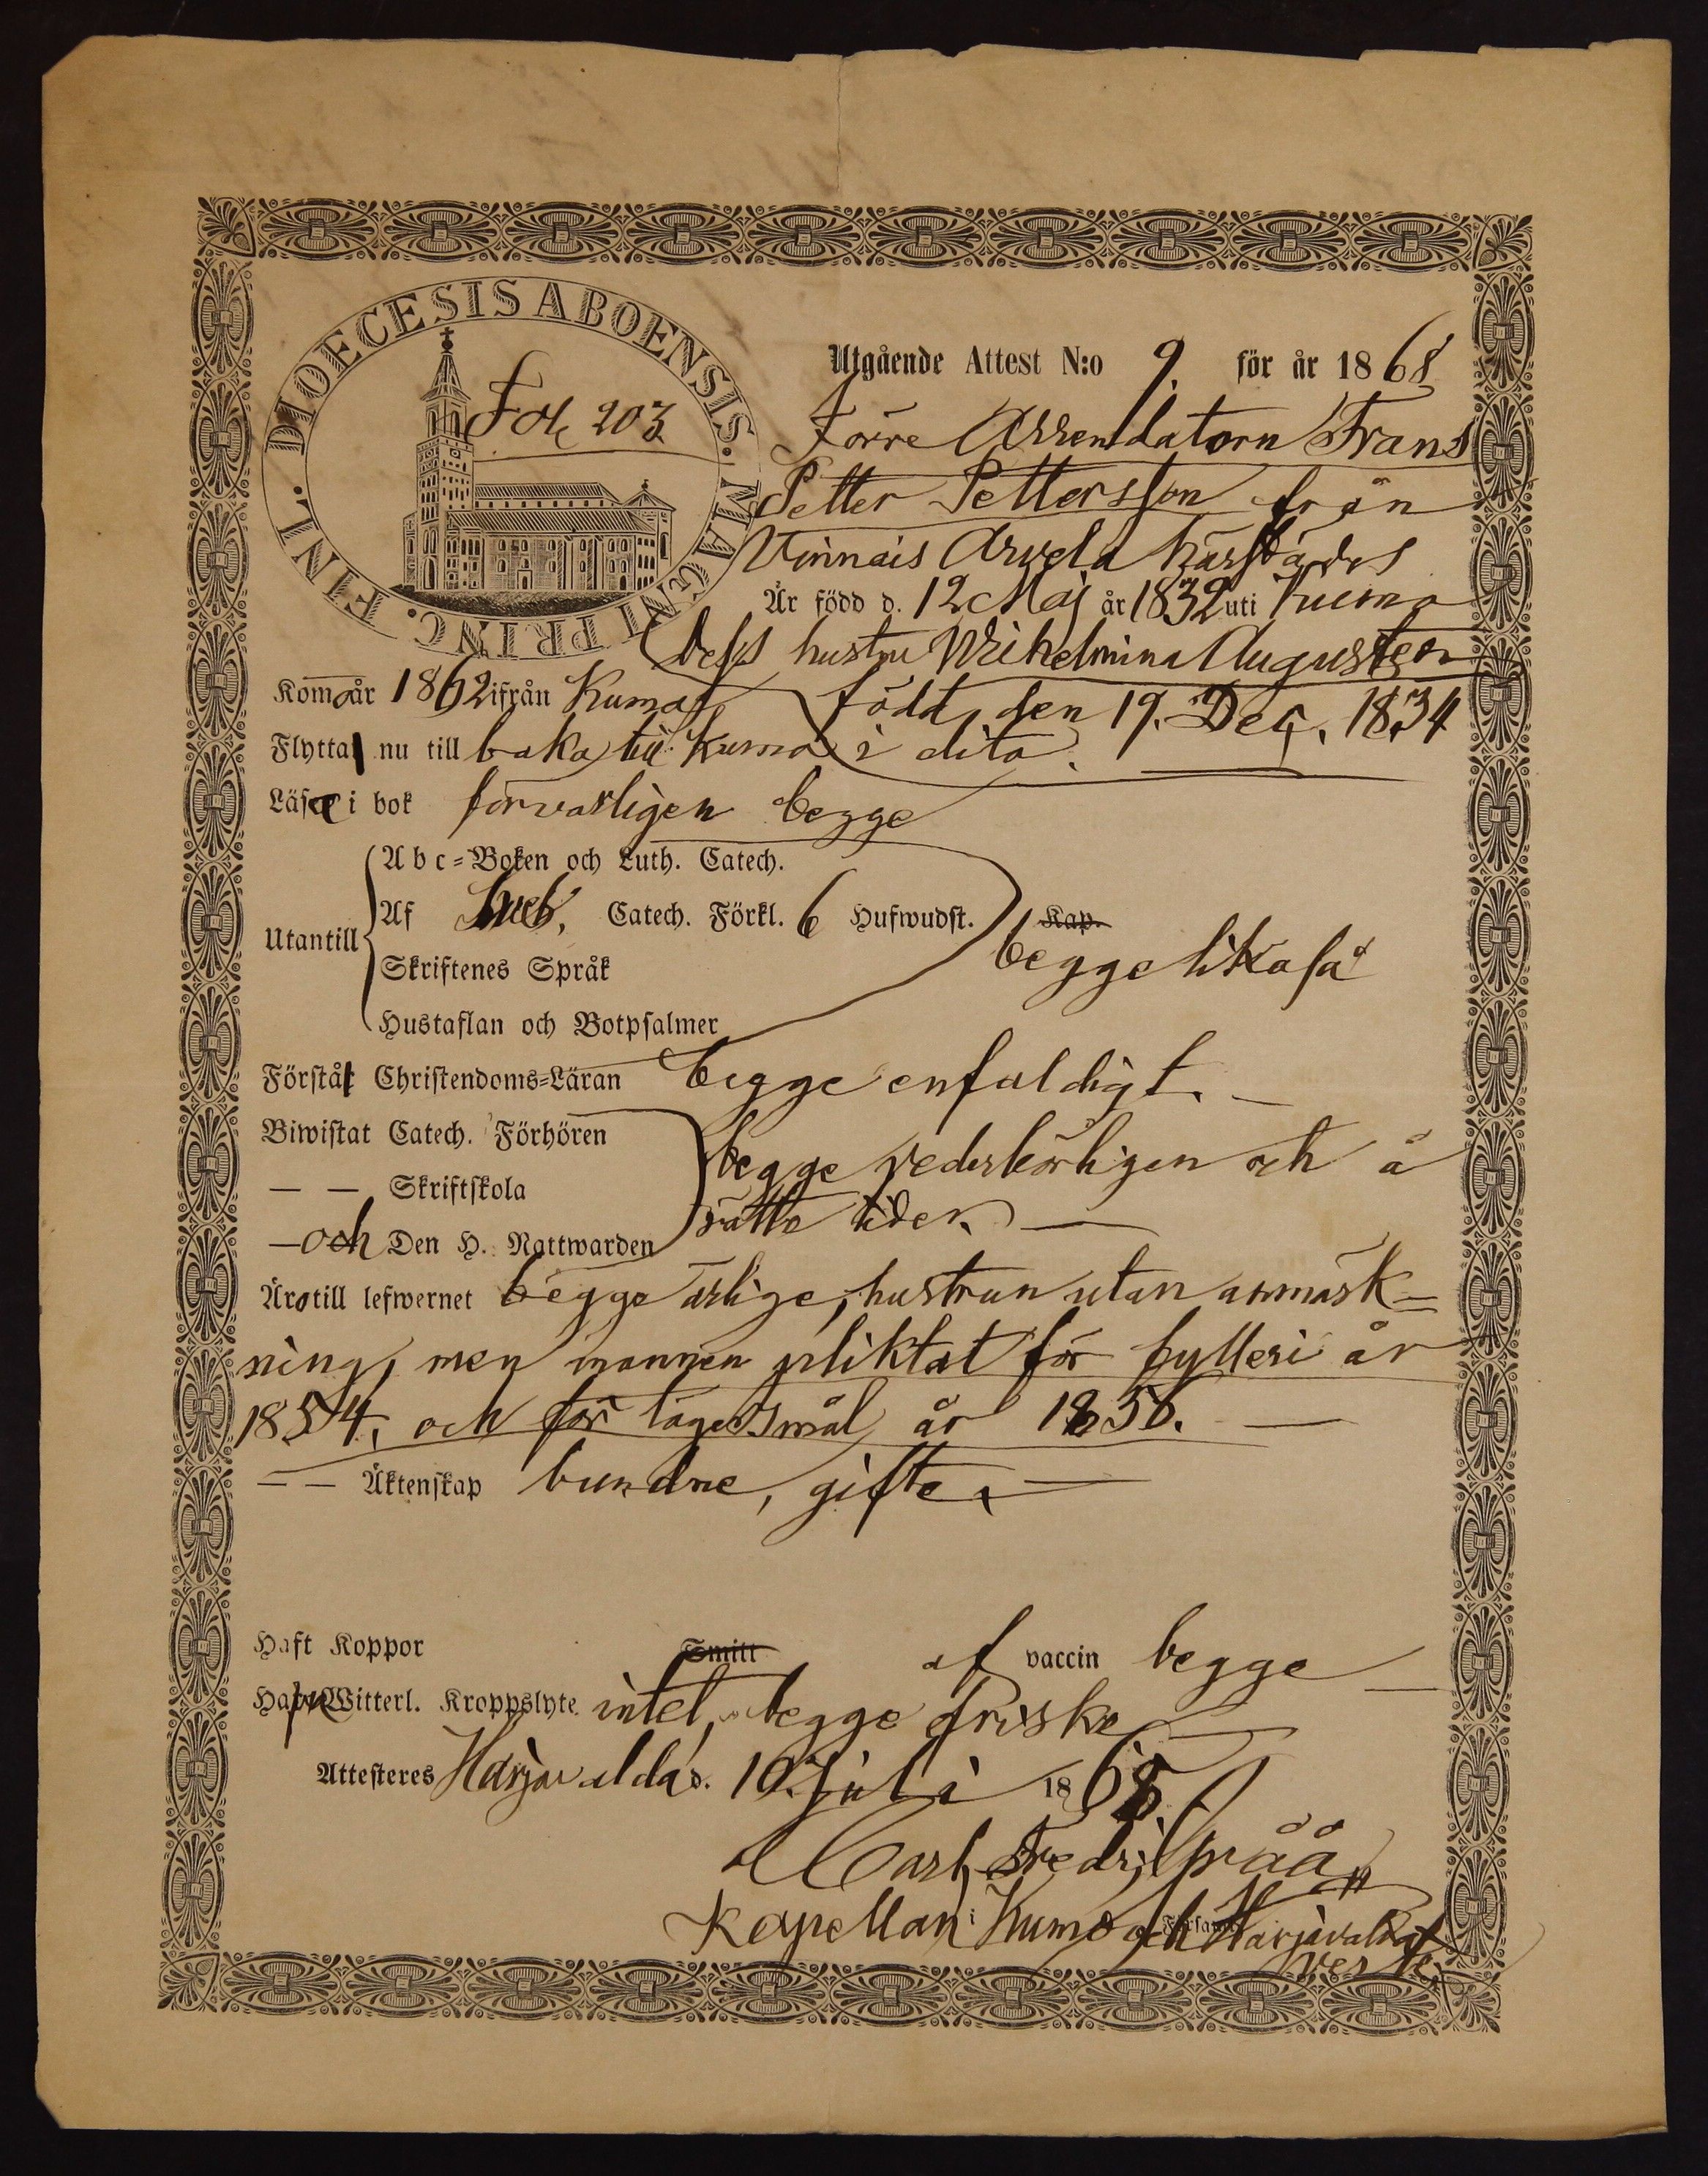 DIOECESIS ABOENSIS. MAGNI PRINC. FINL.
Fol. 203
Utgående Attest N:o 9. för år 1868
Förre Arrendatorn Frans
Petter Pettersson från
Vinnais Arvela härstädes
Är född d. 12 Maj år 1832 uti Kumo
Dess hustru Wilhelmina Augustson
Komo år 1862 ifrån Kumo, född den 19. Dec. 1834
Flytta nu till baka till Kumo i dito.
Läsa i bok försvarligen begge
Abc-Boken och Luth. Catech.
Utantill Af Sveb. Catech. Förkl. 6 Hufwudst. Kap.
begge likaså
Skriftenes Språk
Hustaflan och Botpsalmer
Förstå Christendoms-Läran begge enfaldigt.
Biwistat Catech. Förhören begge vederbörligen och å
— — Skriftskola rätta tider. —
— och Den H. Nattwarden
Äro till lefwernet begge ärlige, hustrun utan anmärk=
ning, men mannen pliktat för fylleri år
1854, och för lägersmål år 1856. —
— — Äktenskap bundne, gifte. —
Haft Koppor Smitt af vaccin begge —
Hafva Witterl. Kroppslyte intet, begge friske
Attesteres Harjavalda d. 10. Juli 1868.
Carl Fredr.
Kapellan i Kumo och Harjavalda